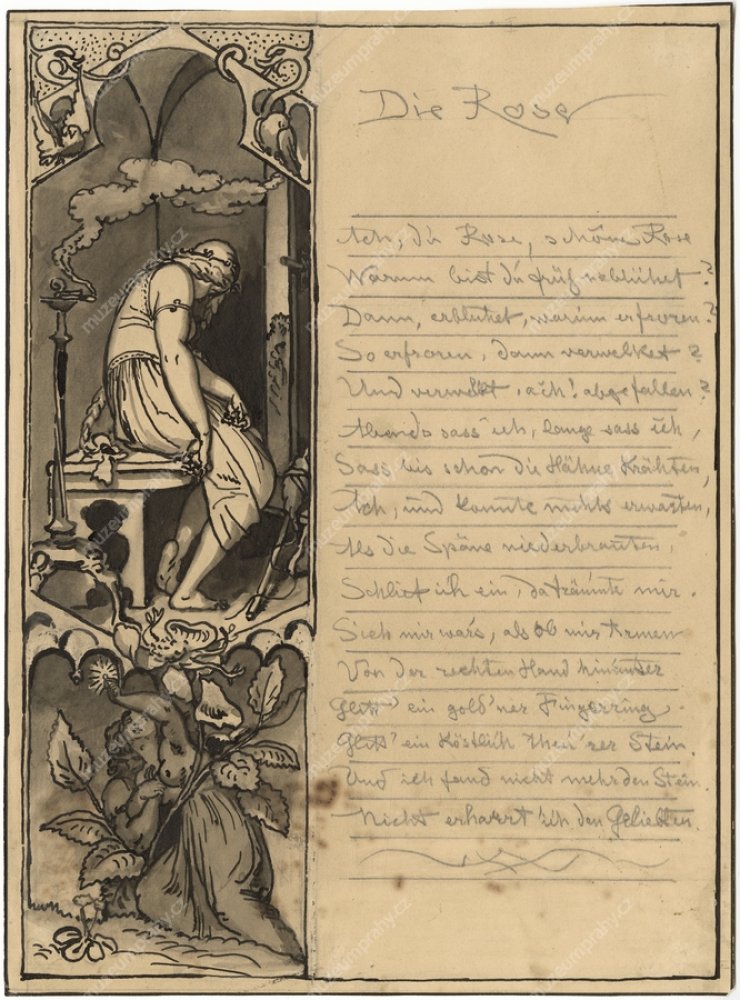 Die Rose
Ach, du Rose, schöne Rose
Warum bist du früh erblühet?
Dann, erblühet, warum erfroren?
So erfroren, dann verwelket?
Und verwelkt, ach! abgefallen?
Abends sass ich, lange sass ich,
Sass bis schon die Hähne Krähten,
Ach, und konnte nichts erwarten,
Als die Späne niederbrannten,
Schlief ich ein, da träumte mir.
Sieh mir war's, als ob mir Armen
Von der rechten Hand hinunter
Glitt' ein gold'ner Fingerring.
Glitt' ein Köstlich theu'rer Stein.
Und ich fand nicht mehr den Stein.
Nicht erharrt' ich den Geliebten.
muzeumprahy.cz